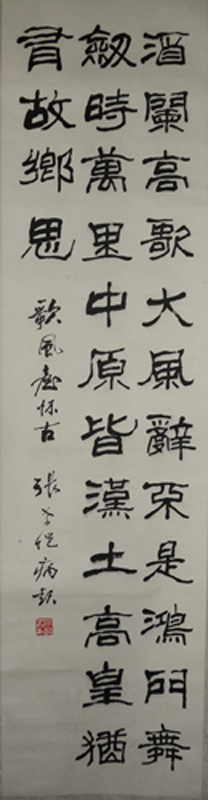 酒闌高歌大風辭不是鴻門舞
劒時萬里中原皆漢土高皇猶
有故鄉思
歌風臺怀古
張 病起